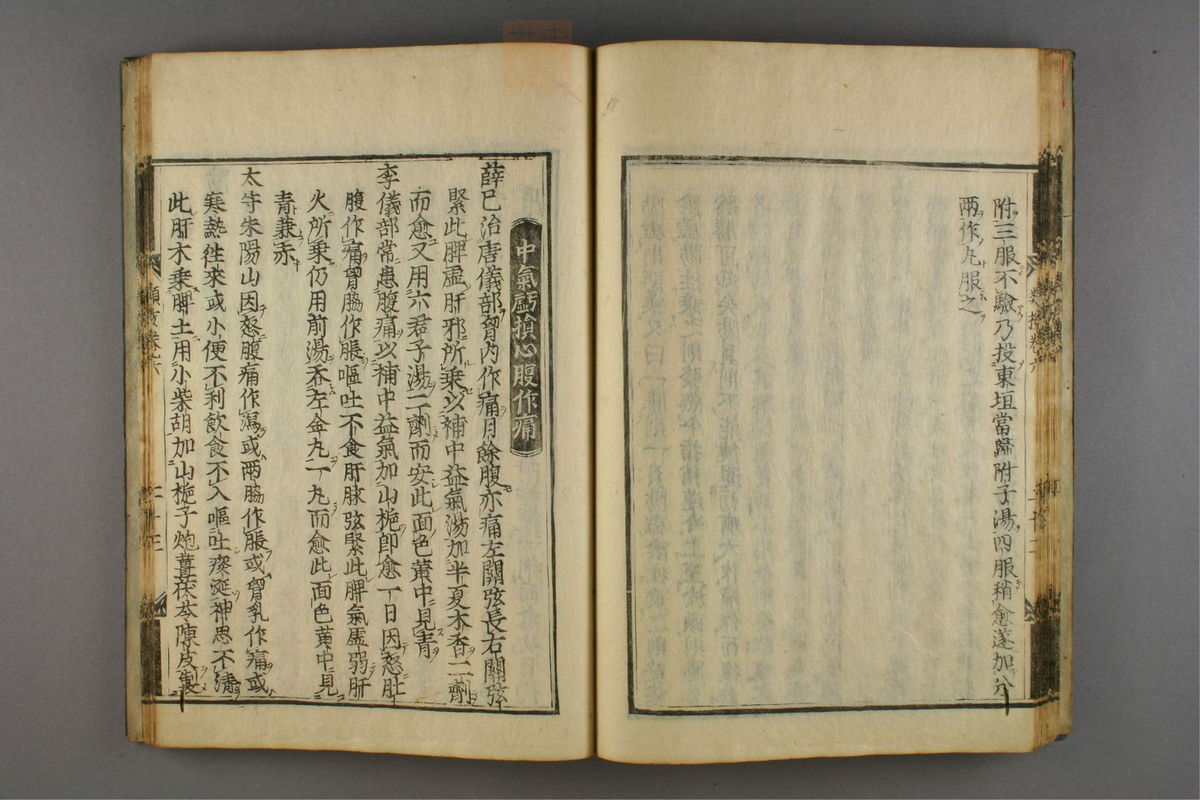 附三服不驗乃投東垣當歸附子湯四服稍愈遂加分
兩作丸服之
中氣虧損心腹作痛
薛已治唐儀部胷内作痛月餘腹亦痛左關弦長右關弦
緊此脾虛肝邪所乘以補中益氣湯加半夏木香二劑
而愈又用六君子湯二劑而安此面色黄中見青
李儀部常患腹痛以補中益氣加山梔即愈一日因怒肚
腹作痛胷脇作脹嘔吐不食肝脉弦緊此脾氣虛弱肝
火所乘仍用前湯吞左金丸一丸而愈此面色黄中見
青兼赤
太守朱陽山因怒腹痛作瀉或兩脇作脹或胷乳作痛或
寒熱徃來或小便不利飲食不入嘔吐痰涎神思不清
此肝木乘脾土用小柴胡加山梔子炮薑茯苓陳皮製